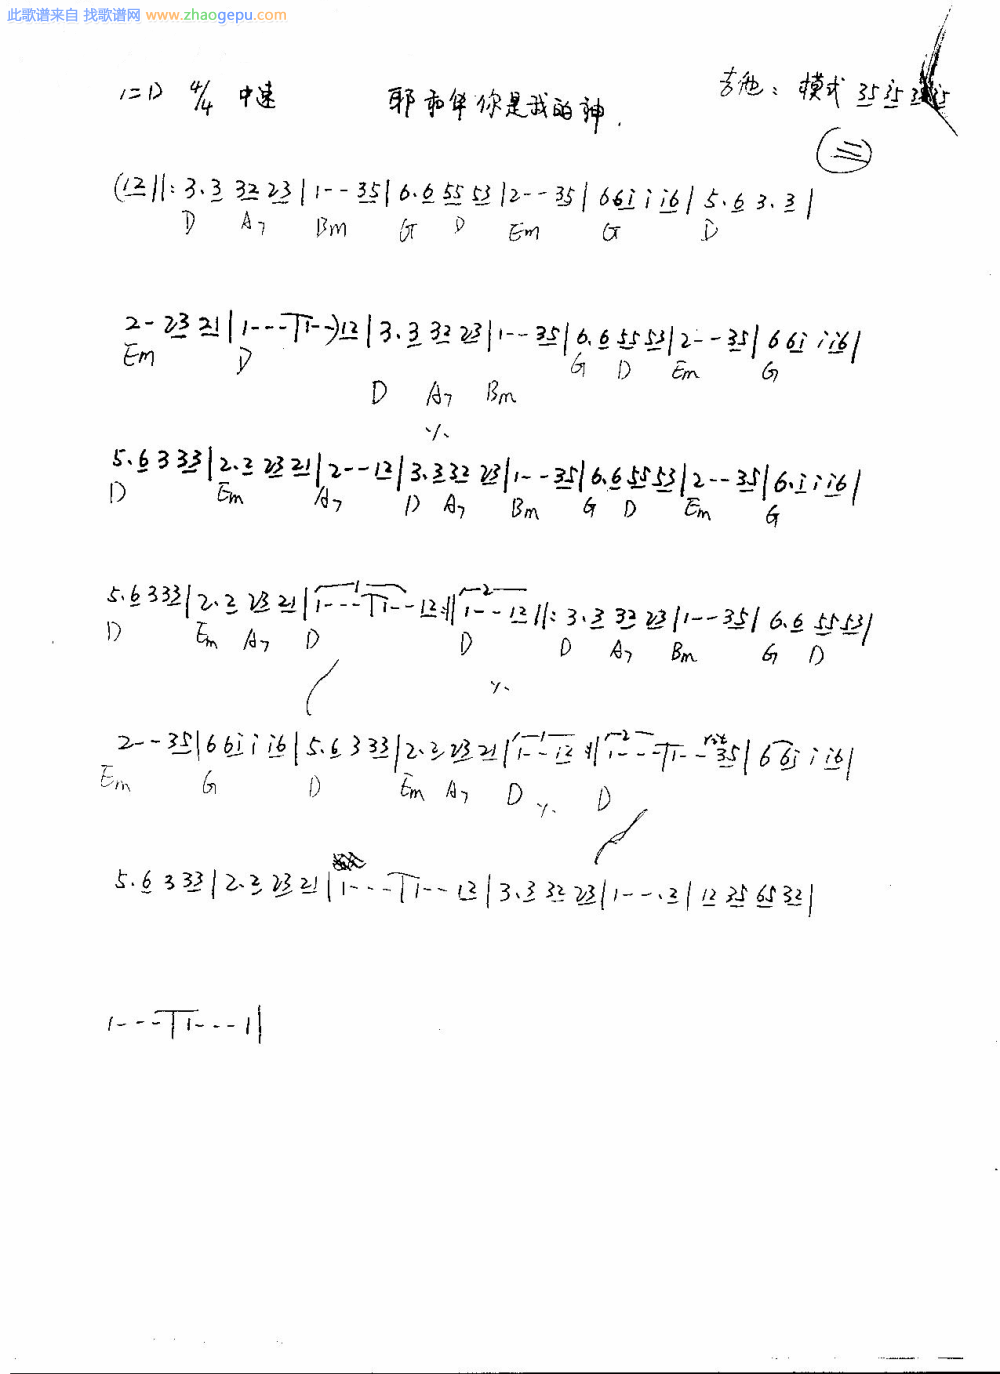 此歌谱来自 找歌谱网 www.zhaogepu.com
1=D 4/4 中速 耶和华你是我的神. 吉他: 模式 35 i5 3
(三)
(12||: 3.3 32 23 | 1 - - 35 | 6.6 55 53 | 2 - - 35 | 6 6i i i6 | 5.6 3.3 |
D A7 Bm G D Em G D
2 - 23 21 | 1 - - - | 1 - - ) 12 | 3.3 32 23 | 1 - - 35 | 6.6 55 53 | 2 - - 35 | 6 6i i i6 |
Em D D A7 Bm G D Em G
٪
5.6 3 33 | 2.2 23 21 | 2 - - 12 | 3.3 32 23 | 1 - - 35 | 6.6 55 53 | 2 - - 35 | 6.i i i6 |
D Em A7 D A7 Bm G D Em G
5.6 3 33 | 2.2 23 21 | 1 1 - - - | 1 - - 12 :|| 2 1 - - 12 ||: 3.3 32 23 | 1 - - 35 | 6.6 55 53 |
D Em A7 D D D A7 Bm G D
٪
2 - - 35 | 6 6i i i6 | 5.6 3 33 | 2.2 23 21 | 1 1 - - 12 :|| 2 1 - - - | 1 - - rit 35 | 6 6i i i6 |
Em G D Em A7 D ٪ D
5.6 3 33 | 2.2 23 21 | 1 - - - | 1 - - 12 | 3.3 32 23 | 1 - - .2 | 12 35 65 32 |
1 - - - | 1 - - - 1 |